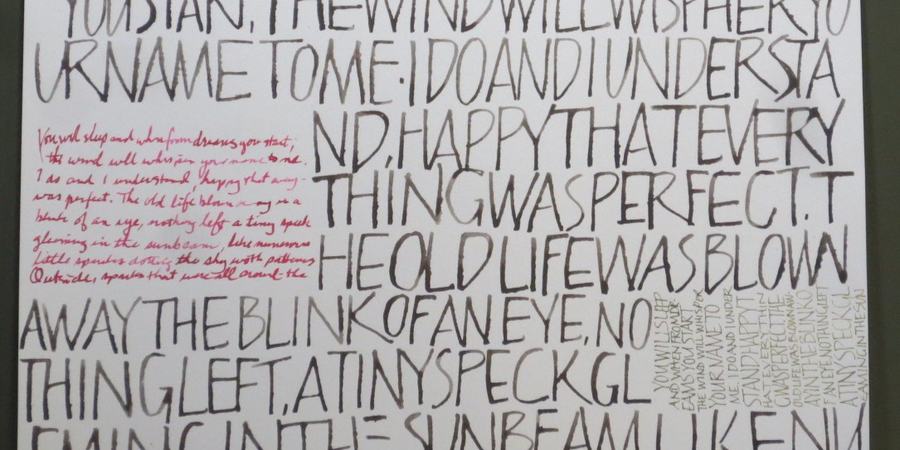 YOUSTAN, THEWINDWILLWISPHERYO
URNAMETOME·IDOANDIUNDERSTA
ND, HAPPYTHATEVERY
THINGWASPERFECT.T
HEOLDLIFEWASBLOWN
AWAYTHEBLINKOFANEYE, NO
THINGLEFT, ATINYSPECKGL
EMINGINTHESUNBEAMLIKENU
You will sleep and when from dreams you start,
the wind will whisper your name to me.
I do and I understand, happy that every-
was perfect. The old life blown away in a
blink of an eye, nothing left a tiny speck
gleming in the sunbeam, like numerous
little speckes dotting the sky with patterns
Outside, specks that were all around the
YOUWILLSLEEP
THEWINDWILLWHISPER
YOURNAMETO
ME. IDOANDIUNDER
STANDHAPPYT
WASPERFECTTHE
ATINYSPECKGL